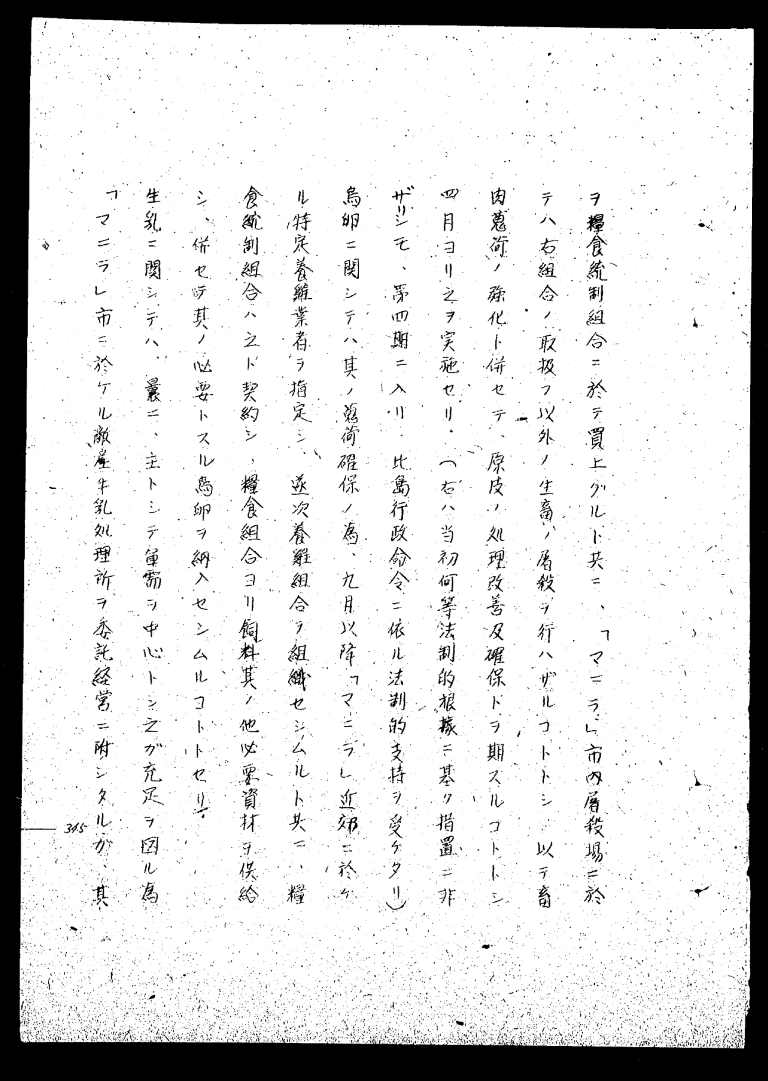 ヲ糧食統制組合ニ於テ買上グルト共ニ、「マニラ」市内屠殺場ニ於
テハ右組合ノ取扱フ以外ノ生畜ノ屠殺ヲ行ハザルコトトシ以テ畜
肉蒐荷ノ強化ト併セテ、原皮ノ処理改善及確保トヲ期スルコトトシ
四月ヨリ之ヲ実施セリ。(右ハ当初何等法制的根據ニ基ク措置ニ非
ザリシモ、第四期ニ入リ、比島行政命令ニ依ル法制的支持ヲ受ケタリ)
鳥卵ニ関シテハ其ノ蒐荷確保ノ為、九月以降「マニラ」近郊ニ於ケ
ル特定養雞業者ヲ指定シ、逐次養雞組合ヲ組織セシムルト共ニ、糧
食統制組合ハ之ト契約シ、糧食組合ヨリ飼料其ノ他必要資材ヲ供給
シ、併セテ其ノ必要トスル鳥卵ヲ納入セシムルコトトセリ。
生乳ニ関シテハ、曩ニ、主トシテ軍需ヲ中心トシ之ガ充足ヲ図ル為
「マニラ」市ニ於ケル敵産牛乳処理所ヲ委託経営ニ附シタルガ、其
345